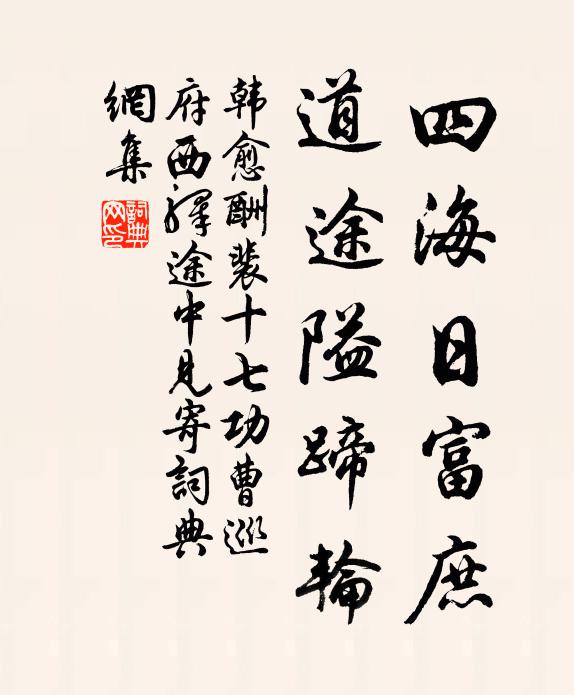 四海日富庶
道途隘蹄輪
韩愈酬裴十七功曹巡
府西驛途中見寄詞典
網集
詞典
网印